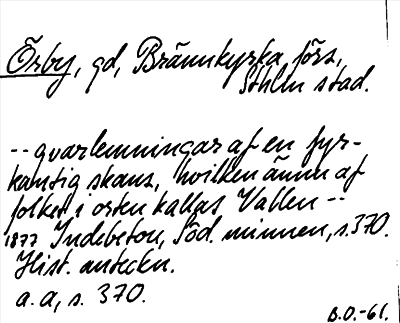 Örby, gd, Brännkyrka förs,
Sthlm stad.
-- qvarlemningar af en fyr-
kantig skans, hvilken ännu af
folket i orten kallas Vallen --
1877 Indebetou, Söd. minnen, s. 370.
Hist. anteckn.
a. a, s. 370.
B.O.-61.